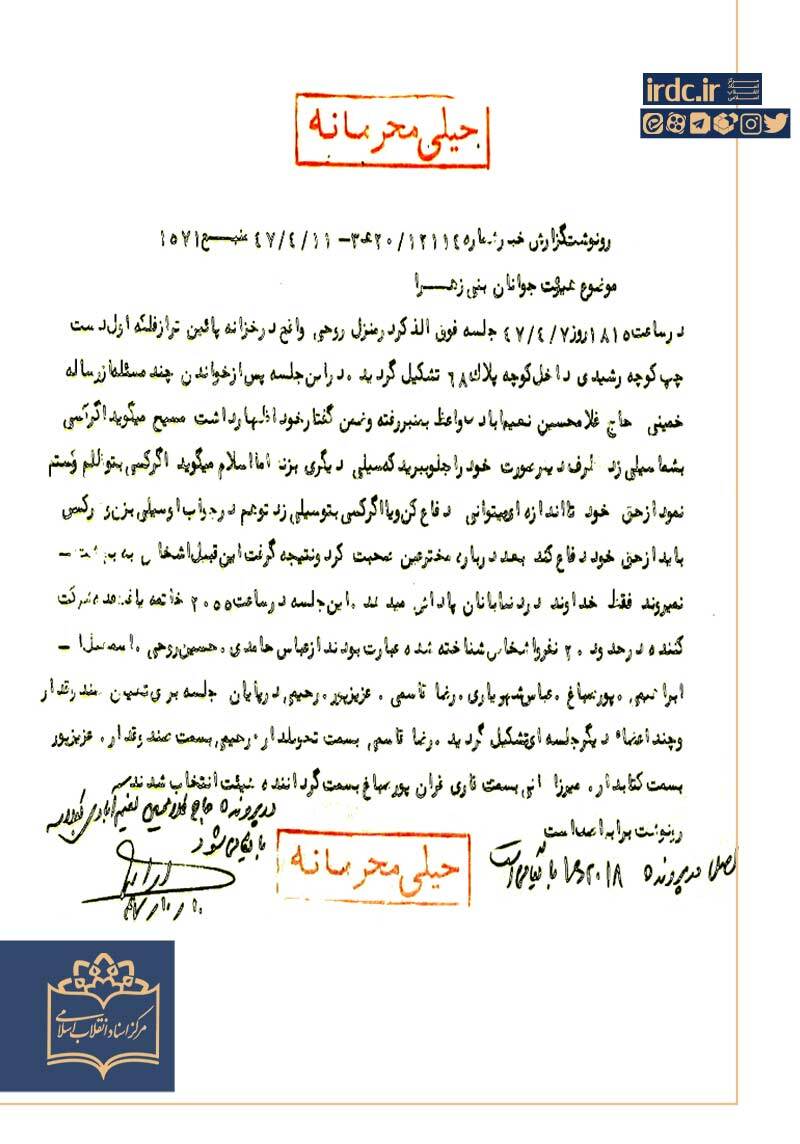 irdc.ir
مرکز اسناد انقلاب اسلامی
خیلی محرمانه
رونوشت گزارش خبر شماره ۲۰/۱۲۱۱۴ه۳ – ۴۷/۴/۱۱ منبع ۱۵۷۱
موضوع هیئت جوانان بنی زهرا
در ساعت ۱۸۱۵ روز ۴۷/۴/۷ جلسه فوق الذکر در منزل روحی واقع در خزانه پائین تر از فلکه اول دست
چپ کوچه رشیدی داخل کوچه پلاک ۶۸ تشکیل گردید . در این جلسه پس از خواندن چند مسئله از رساله
خمینی حاج غلامحسین نعیم‌آبادی واعظ به منبر رفته وضمن گفتار خود اظهار داشت مسیح میگوید اگر کسی
بشما سیلی زد طرف دیگر صورت خود را جلو ببرید که سیلی دیگری بزند اما اسلام میگوید اگر کسی بتو ظلم وستم
نمود از حق خود تا اندازه ای میتوانی دفاع کن ویا اگر کسی بتو سیلی زد تو هم در جواب او سیلی بزن و هر کسی
باید از حق خود دفاع کند بعد درباره مخترعین صحبت کرد ونتیجه گرفت این قبیل اشخاص به بهشت –
نمیروند فقط خداوند در دنیا بانان پاداش میدهد . این جلسه در ساعت ۲۰۵۵ خاتمه یافت عده شرکت
کننده در حدود ۲۰ نفر و اشخاص شناخته شده عبارت بودند از عباس حامدی . حسین روحی . اسمعیل –
ابراهیمی . پورصباغ . عباس شهریاری . رضا قاسمی . عزیزپور . رحیمی در پایان جلسه برای تعیین صندوقدار
وچند اعضاء دیگر جلسه ای تشکیل گردید . رضا قاسمی بسمت تحویلدار . رحیمی بسمت صندوقدار . عزیزپور
بسمت کتابدار . میرزا بسمت قاری قران پورصباغ بسمت گرداننده هیئت انتخاب شدند
رونوشت برابر اصل است
در پرونده حاج غلامحسین نعیم آبادی
بایگانی شود
اصل در پرونده ۲۰۱۸ بایگانی است
خیلی محرمانه
مرکز اسناد انقلاب اسلامی